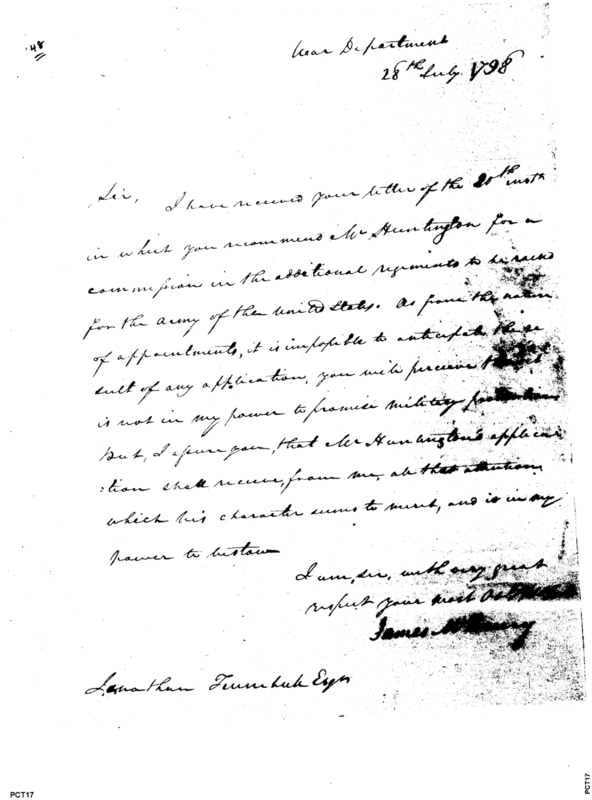 48
War Department
28th July 1798
Sir, I have received your letter of the 20th inst
in which you recommend Mr Huntington for a
commission in the additional regiments to be raised
for the army of the United States. As from the nature
of appointments, it is impossible to anticipate the re
sult of any application, you will perceive that it
is not in my power to promise military
But, I assure you, that Mr Huntington's applica
:tion shall receive, from me, all that attention
which his character seems to merit, and is in my
power to bestow
I am, sir, with very great
respect your most Obt
James McHenry
Jonathan Trumbull Esqr
PCT17
PCT17